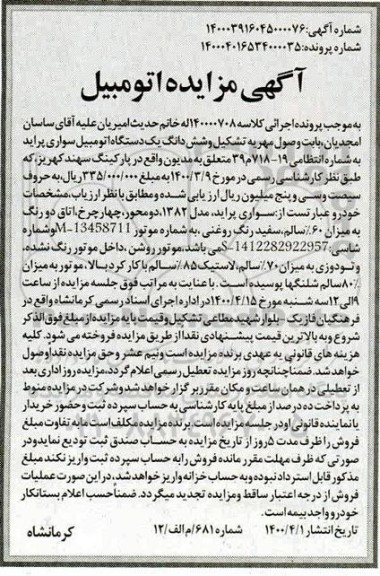 شماره آگهی:۱۴۰۰۰۳۹۱۶۰۴۵۰۰۰۰۷۶
شماره پرونده:۱۴۰۰۰۴۰۱۶۵۳۴۰۰۰۰۳۵
آگهی مزایده اتومبیل
به موجب پرونده اجرائی کلاسه ۱۴۰۰۰۰۷۰۸له خانم حدیث امیریان علیه آقای ساسان
امجدیان،بابت وصول مهریه تشکیل وشش دانگ یک دستگاه اتومبیل سواری پراید
به شماره انتظامی ۱۹-۷۱۸م۳۹ متعلق به مدیون واقع در پارکینگ سهند کهریز،که
طبق نظر کارشناسی رسمی در مورخ ۱۴۰۰/۳/۹ به مبلغ ۳۳۵/۰۰۰/۰۰۰ریال،به حروف
سیصت وسی و پنج میلیون ریال ارزیابی شده و مطابق با نظر ارزیاب،مشخصات
خودرو عبارتست از:سواری پراید، مدل ۱۳۸۲،دومحور،چهارچرخ،اتاق دو رنگ
به میزان ۶۰٪سالم،سفید رنگ روغنی،به شماره موتور M-13458711وشماره
شاسی:S-1412282922957می باشد.موتور روشن ،داخل موتور رنگ نشده،
و تودوزی به میزان ۷۰٪سالم،لاستیک ۸۵٪سالم باکارکرد بالا، موتور به میزان
۸۰٪سالم شلنگها پوسیده است. با عنایت به مراتب فوق جلسه مزایده از ساعت
۹الی ۱۲ سه شنبه مورخ ۱۴۰۰/۴/۱۵ در اداره اجرای اسناد رسمی کرمانشاه واقع در
فرهنگیان فازیک - بلوار شهید مطاعی تشکیل و قیمت پایه مزایده از مبلغ فوق الذکر
شروع و به بالاترین قیمت پیشنهادی نقدا از طریق مزایده فروخته می شود. کلیه
هزینه های قانونی به عهدی برنده مزایده است و نیم عشر و حق مزایده نقداوصول
خواهدشد.ضمناچنانچه روز مزایده تعطیل رسمی اعلام گردد،مزایده روزاداری بعد
از تعطیلی در همان ساعت و مکان مقرر برگزار خواهدشد و شرکت در مزایده منوط
به پرداخت ده درصد از مبلغ پایه کارشناسی به حساب سپرده ثبت و حضور خریدار
یا نماینده قانونی او در جلسه مزایده است.برنده مزایده مکلف است مابه تفاوت مبلغ
فروش را ظرف مدت ۵روز از تاریخ مزایده به حساب صندق ثبت تودیع نماید ودر
صورتی که ظرف مهلت مقرر مانده فروش را به حساب سپرده ثبت واریز نکند مبلغ
مذکور قابل استرداد نبوده و به حساب خزانه واریز خواهد شد،در این صورت عملیات
فروش از درجه اعتبار ساقط و مزایده تجدید میگردد.ضمناًحسب اعلام بستانکار
خودرو واجد بیمه است.
تاریخ انتشار ۱۴۰۰/۴/۱ شماره ۶۸۱/م الف/۱۲ کرمانشاه